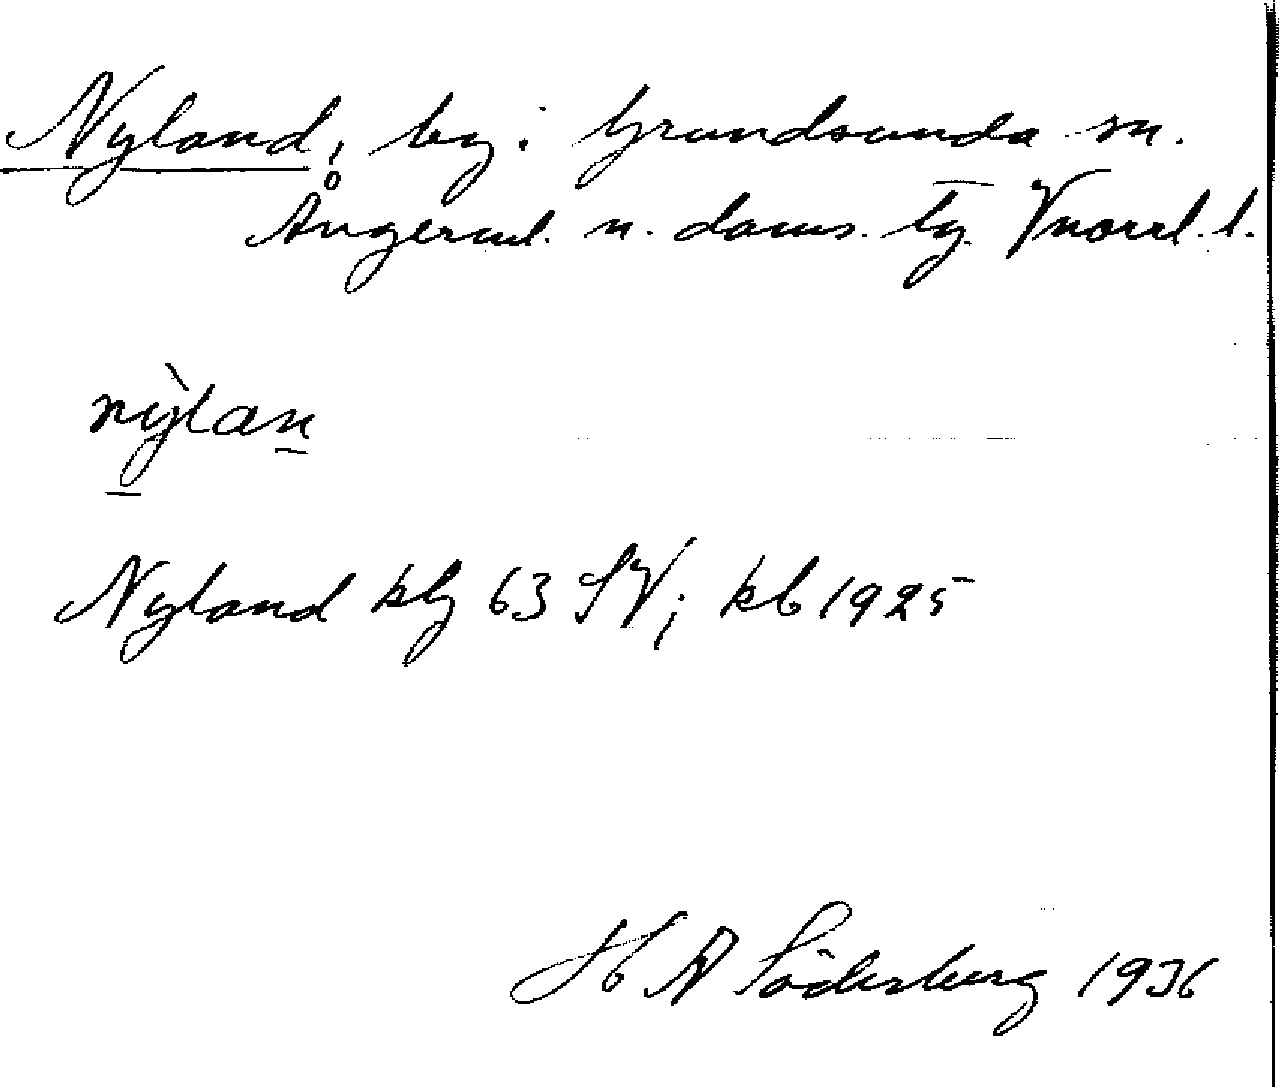 Nyland, by i Grundsunda sn.
Ångerml. n. doms. tg. Vnorrl. l.
nỳlan
Nyland kbg 63 SV; kb 1925
H A Söderberg 1936